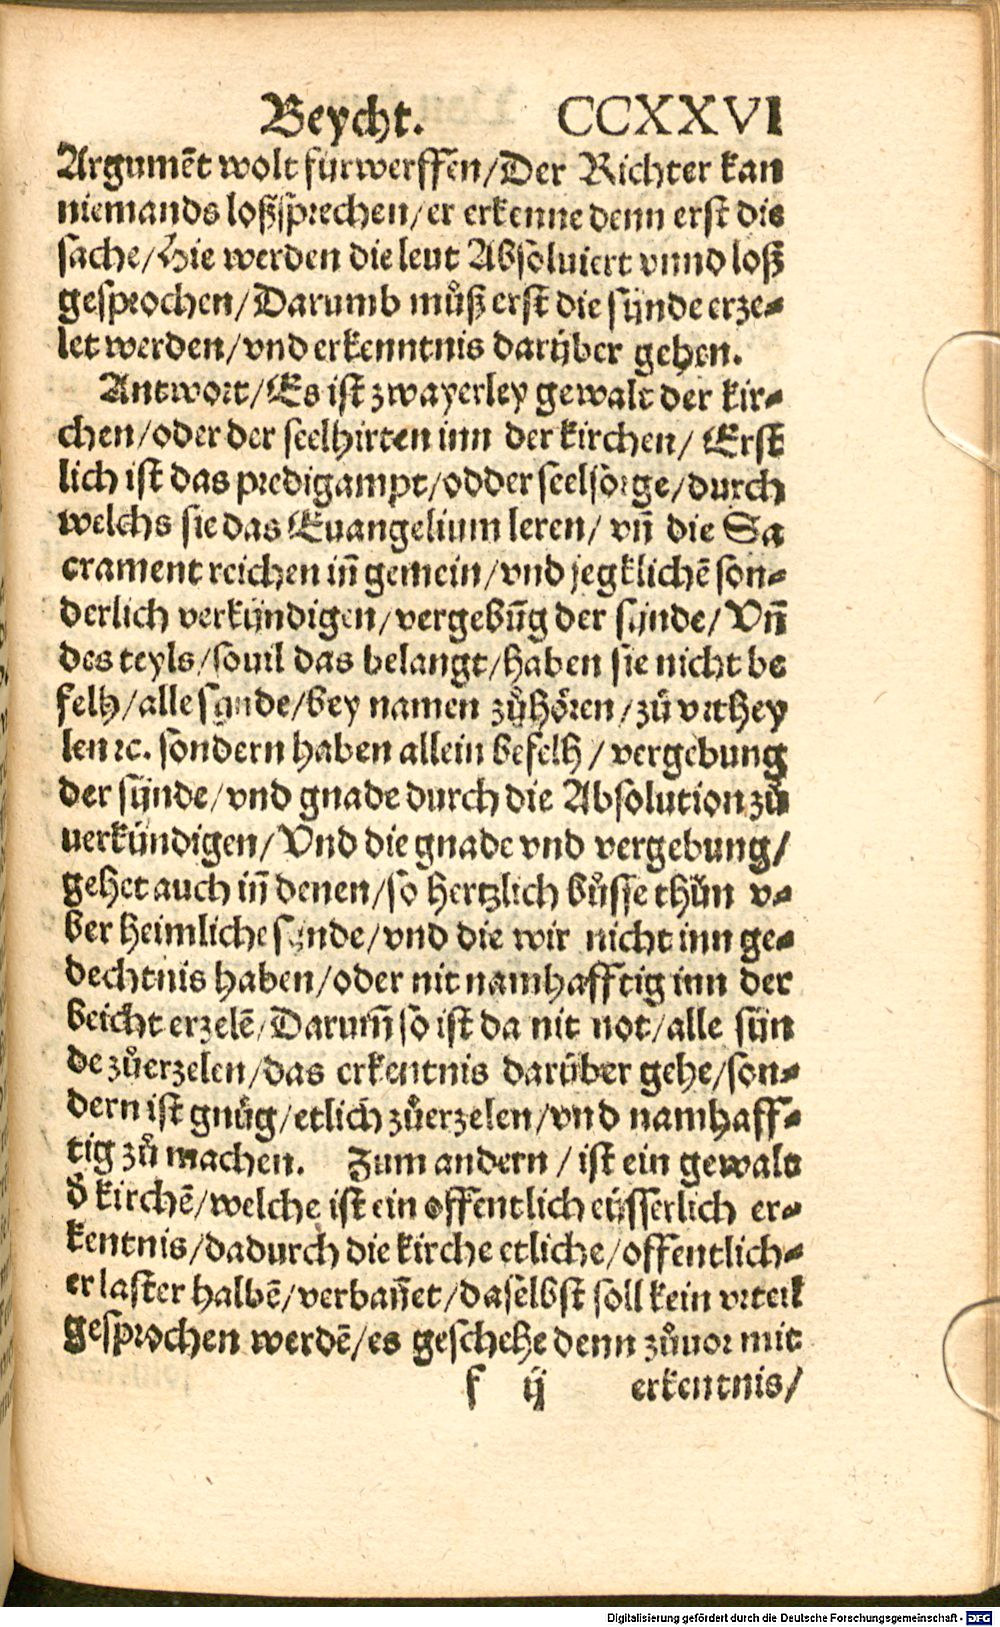 Beycht. CCXXVI
Argumēt wolt fürwerffen/Der Richter kan
niemands loßsprechen/er erkenne denn erst die
sache/Hie werden die leut Absoluiert vnnd loß
gesprochen/Darumb můß erst die sünde erze⸗
let werden/vnd erkenntnis darüber gehen.
Antwort/Es ist zwayerley gewalt der kir⸗
chen/oder der seelhirten inn der kirchen/ Erst
lich ist das predigampt/odder seelsorge/durch
welchs sie das Euangelium leren/ vn̄ die Sa
crament reichen in̄ gemein/vnd jegklichē son⸗
derlich verkündigen/vergebūg der sünde/Vn̄
des teyls/souil das belangt/haben sie nicht be
felh/alle sünde/bey namen zůhören/zů vrthey
len ꝛc. sondern haben allein befelh/vergebung
der sünde/vnd gnade durch die Absolution zů
uerkündigen/Vnd die gnade vnd vergebung/
gehet auch in̄ denen/so hertzlich bůsse thůn v⸗
ber heimliche sünde/vnd die wir nicht inn ge⸗
dechtnis haben/oder nit namhafftig inn der
beicht erzelē/Darum̄ so ist da nit not/alle sün
de zůerzelen/das erkentnis darüber gehe/son⸗
dern ist gnůg/etlich zůerzelen/vnd namhaff⸗
tig zů machen. Zum andern/ist ein gewalt
d̓ kirchē/welche ist ein offentlich eüsserlich er⸗
kentnis/dadurch die kirche etliche/offentlich⸗
er laster halbē/verban̄et/daselbst soll kein vrteil
gesprochen werdē/es geschehe denn zůuor mit
f ij erkentnis/
Digitalisierung gefördert durch die Deutsche Forschungsgemeinschaft - DFG